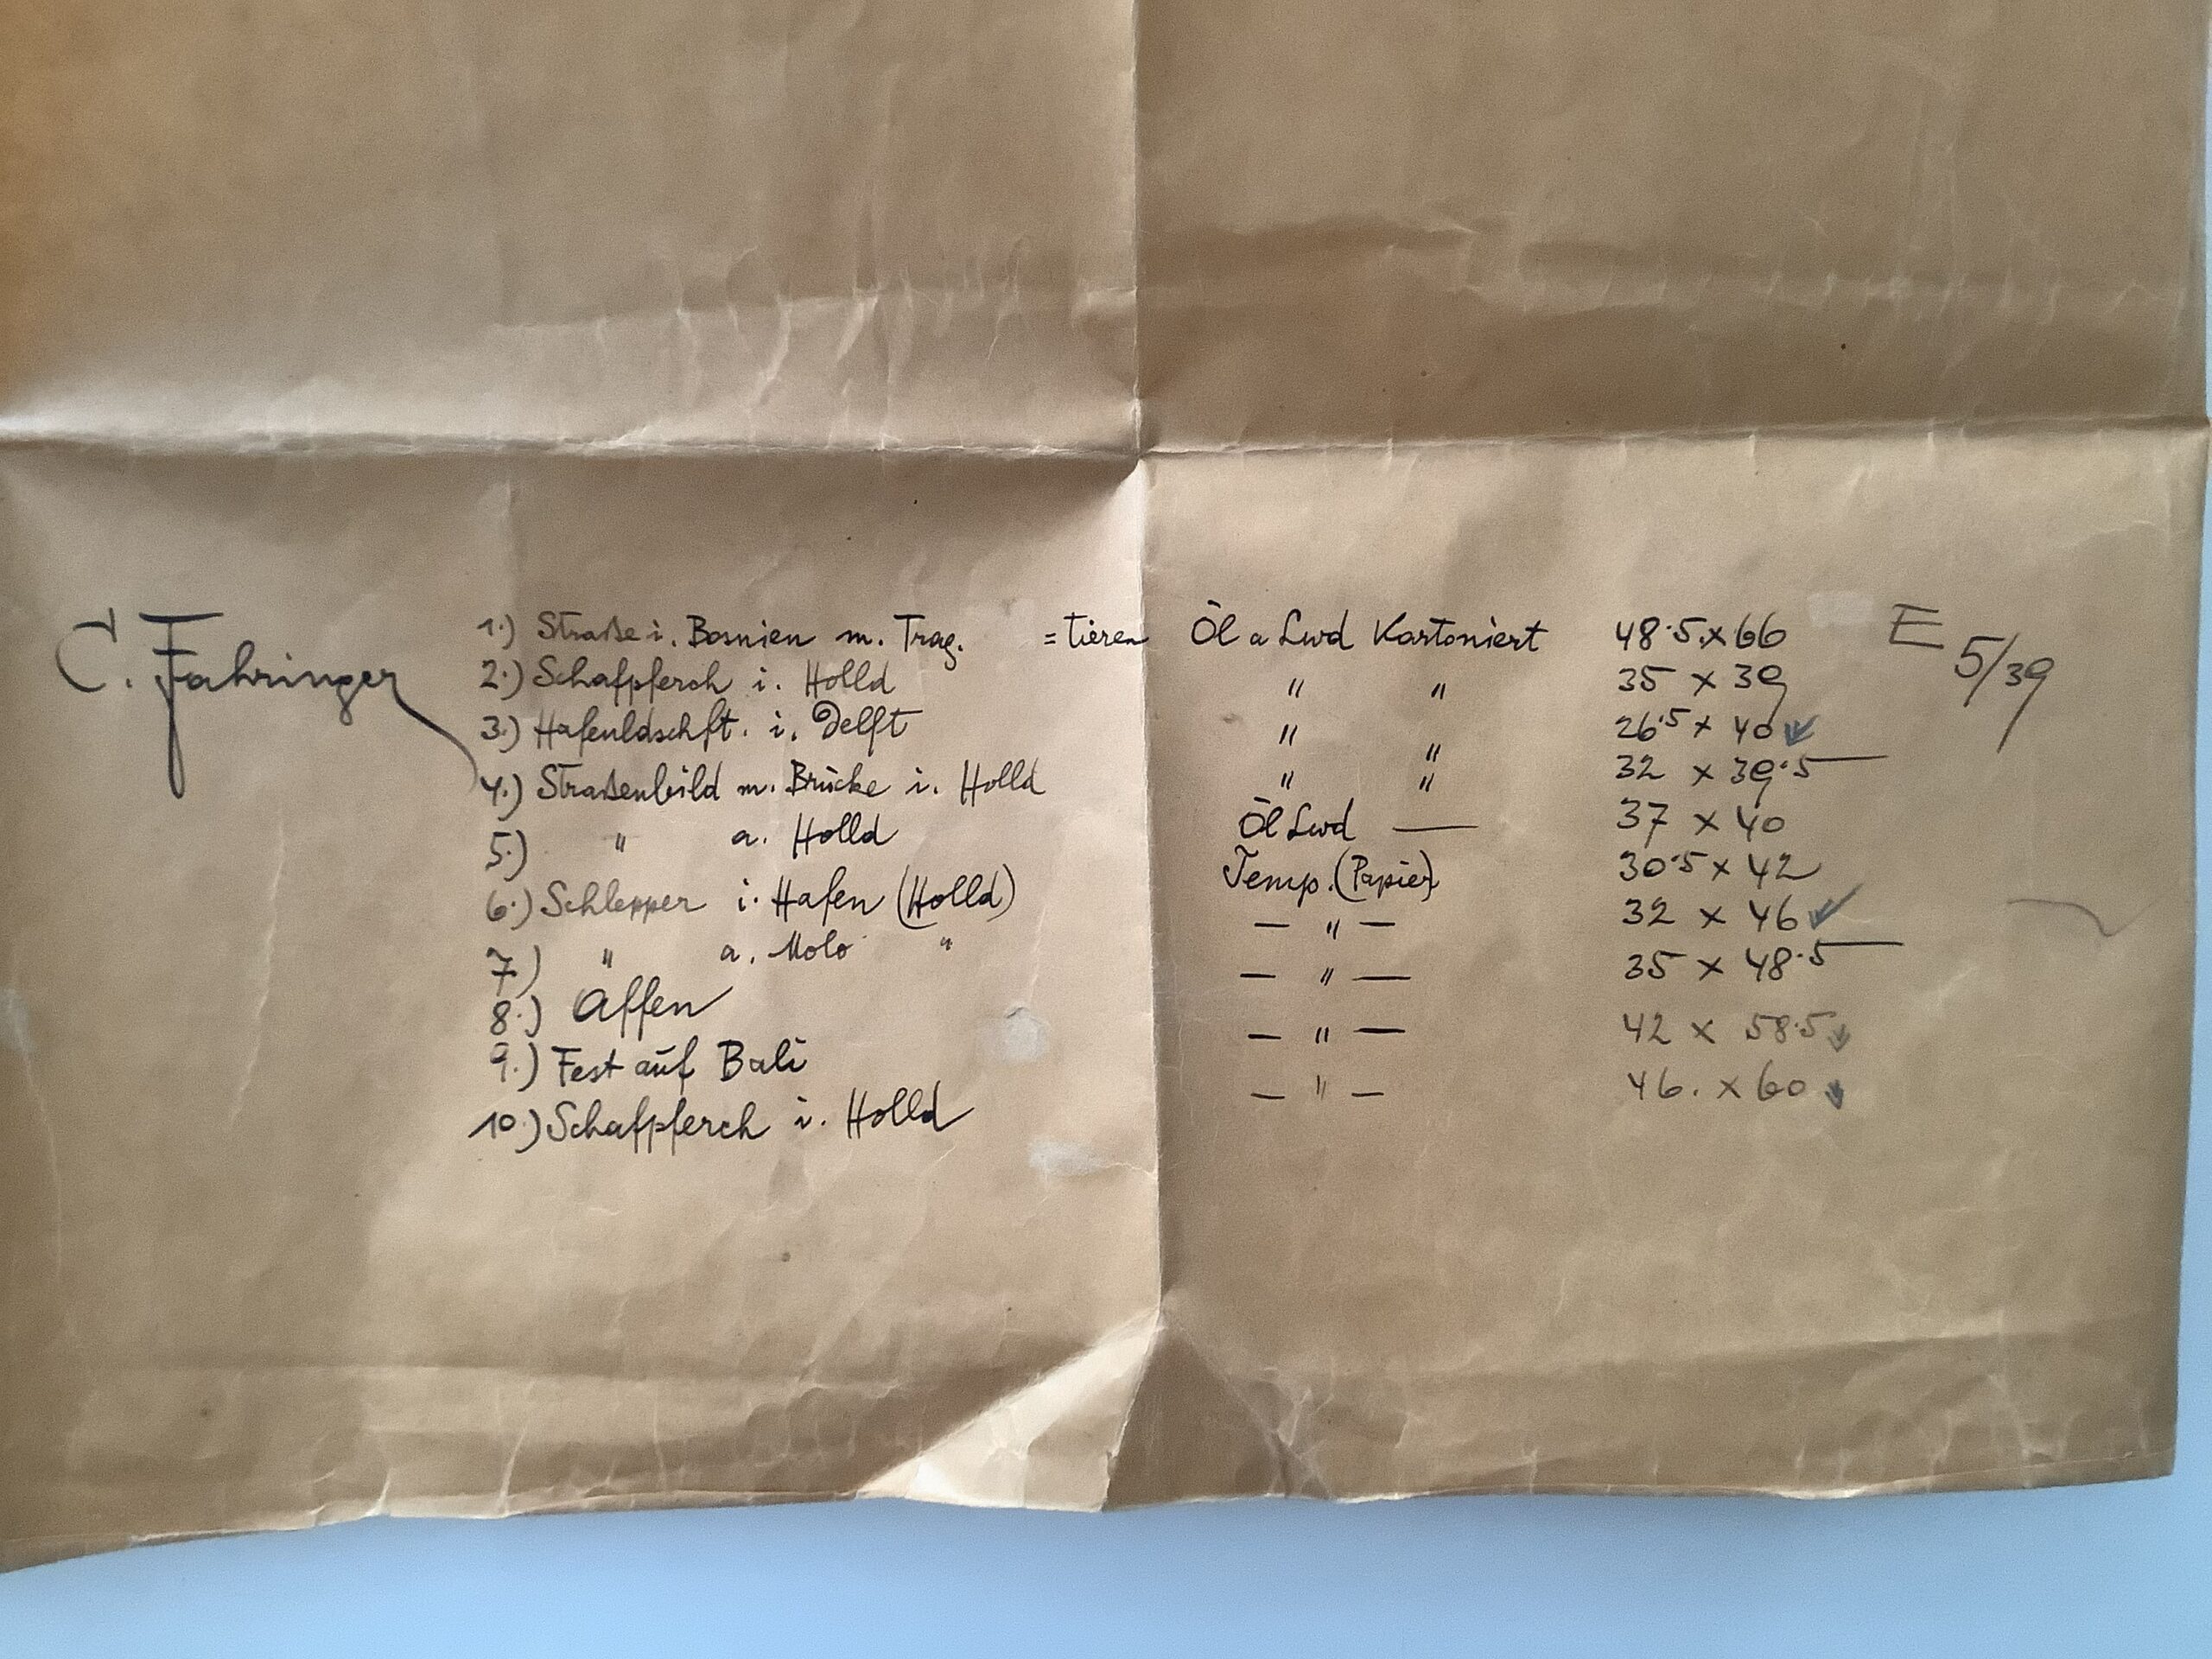 C. Fahringer
1.) Straße i. Bosnien m. Trag. = tieren Öl a Lwd Kartoniert 48·5 x 66 E 5/39
2.) Schafpferch i. Holld " " 35 x 39
3.) Hafenldschft. i. Delft " " 26·5 x 40
4.) Straßenbild m. Brücke i. Holld " " 32 x 39·5
5.) " a. Holld Öl Lwd — 37 x 40
6.) Schlepper i. Hafen (Holld) Temp. (Papier) 30·5 x 42
7.) " a. Molo " — " — 32 x 46
8.) Affen — " — 35 x 48·5
9.) Fest auf Bali — " — 42 x 58·5
10.) Schafpferch i. Holld — " — 46. x 60